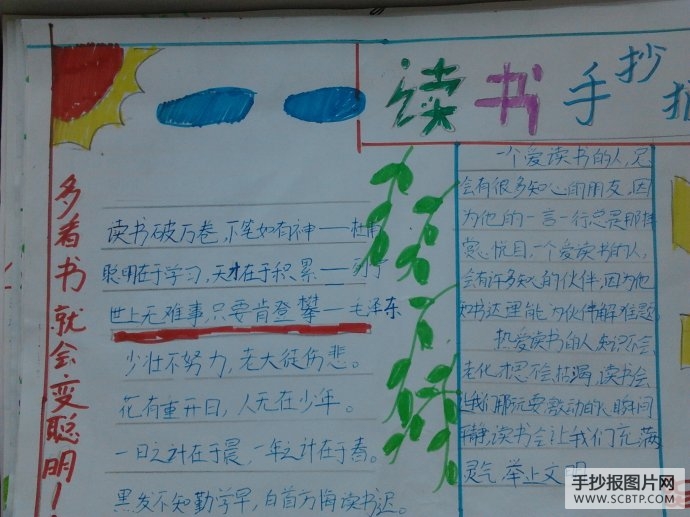 读书手抄报
多看书就会变聪明！
读书破万卷，下笔如有神——杜甫
聪明在于学习，天才在于积累——列宁
世上无难事，只要肯登攀—毛泽东
少壮不努力，老大徒伤悲。
花有重开日，人无在少年。
一日之计在于晨，一年之计在于春。
黑发不知勤学早，白首方悔读书迟。
一个爱读书的人，足
会有很多知心的朋友，因
为他的一言一行总是那样
赏心悦目，一个爱读书的人，
会有许多知心的伙伴，因为他
知书达理能为伙伴解难题
热爱读书的人知识不会
老化才思不会枯竭，读书会
让我们那玩耍激动的瞬间
平静，读书会让我们充满
灵气，举止文明
手抄报图片网
WWW.SCBTP.COM